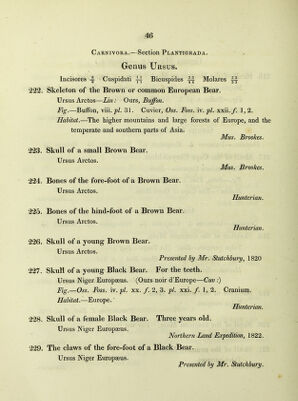 46
CARNIVORA.—Section PLANTIGRADA.
Genus URSUS.
Incisores Cuspidati Bicuspides Molares
222. Skeleton of the Brown or common European Bear.
Ursus Arctos—Lin: Ours, Buffon.
Fig.—Buffon, viii. pl. 31. Cuvier, Oss. Foss. iv. pl. xxii. f. 1, 2.
Habitat.—The higher mountains and large forests of Europe, and the
temperate and southern parts of Asia.
Mus. Brookes.
223. Skull of a small Brown Bear.
Ursus Arctos.
Mus. Brookes.
224. Bones of the fore-foot of a Brown Bear.
Ursus Arctos.
Hunterian.
225. Bones of the hind-foot of a Brown Bear.
Ursus Arctos.
Hunterian.
226. Skull of a young Brown Bear.
Ursus Arctos.
Presented by Mr. Stutchbury, 1820
227. Skull of a young Black Bear. For the teeth.
Ursus Niger Europæus. (Ours noir d'Europe—Cuv:)
Fig.—Oss. Foss. iv. pl. xx. f. 2, 3. pl. xxi. f. 1, 2. Cranium.
Habitat.—Europe.
Hunterian.
228. Skull of a female Black Bear. Three years old.
Ursus Niger Europæus.
Northern Land Expedition, 1822.
229. The claws of the fore-foot of a Black Bear.
Ursus Niger Europæus.
Presented by Mr. Stutchbury.